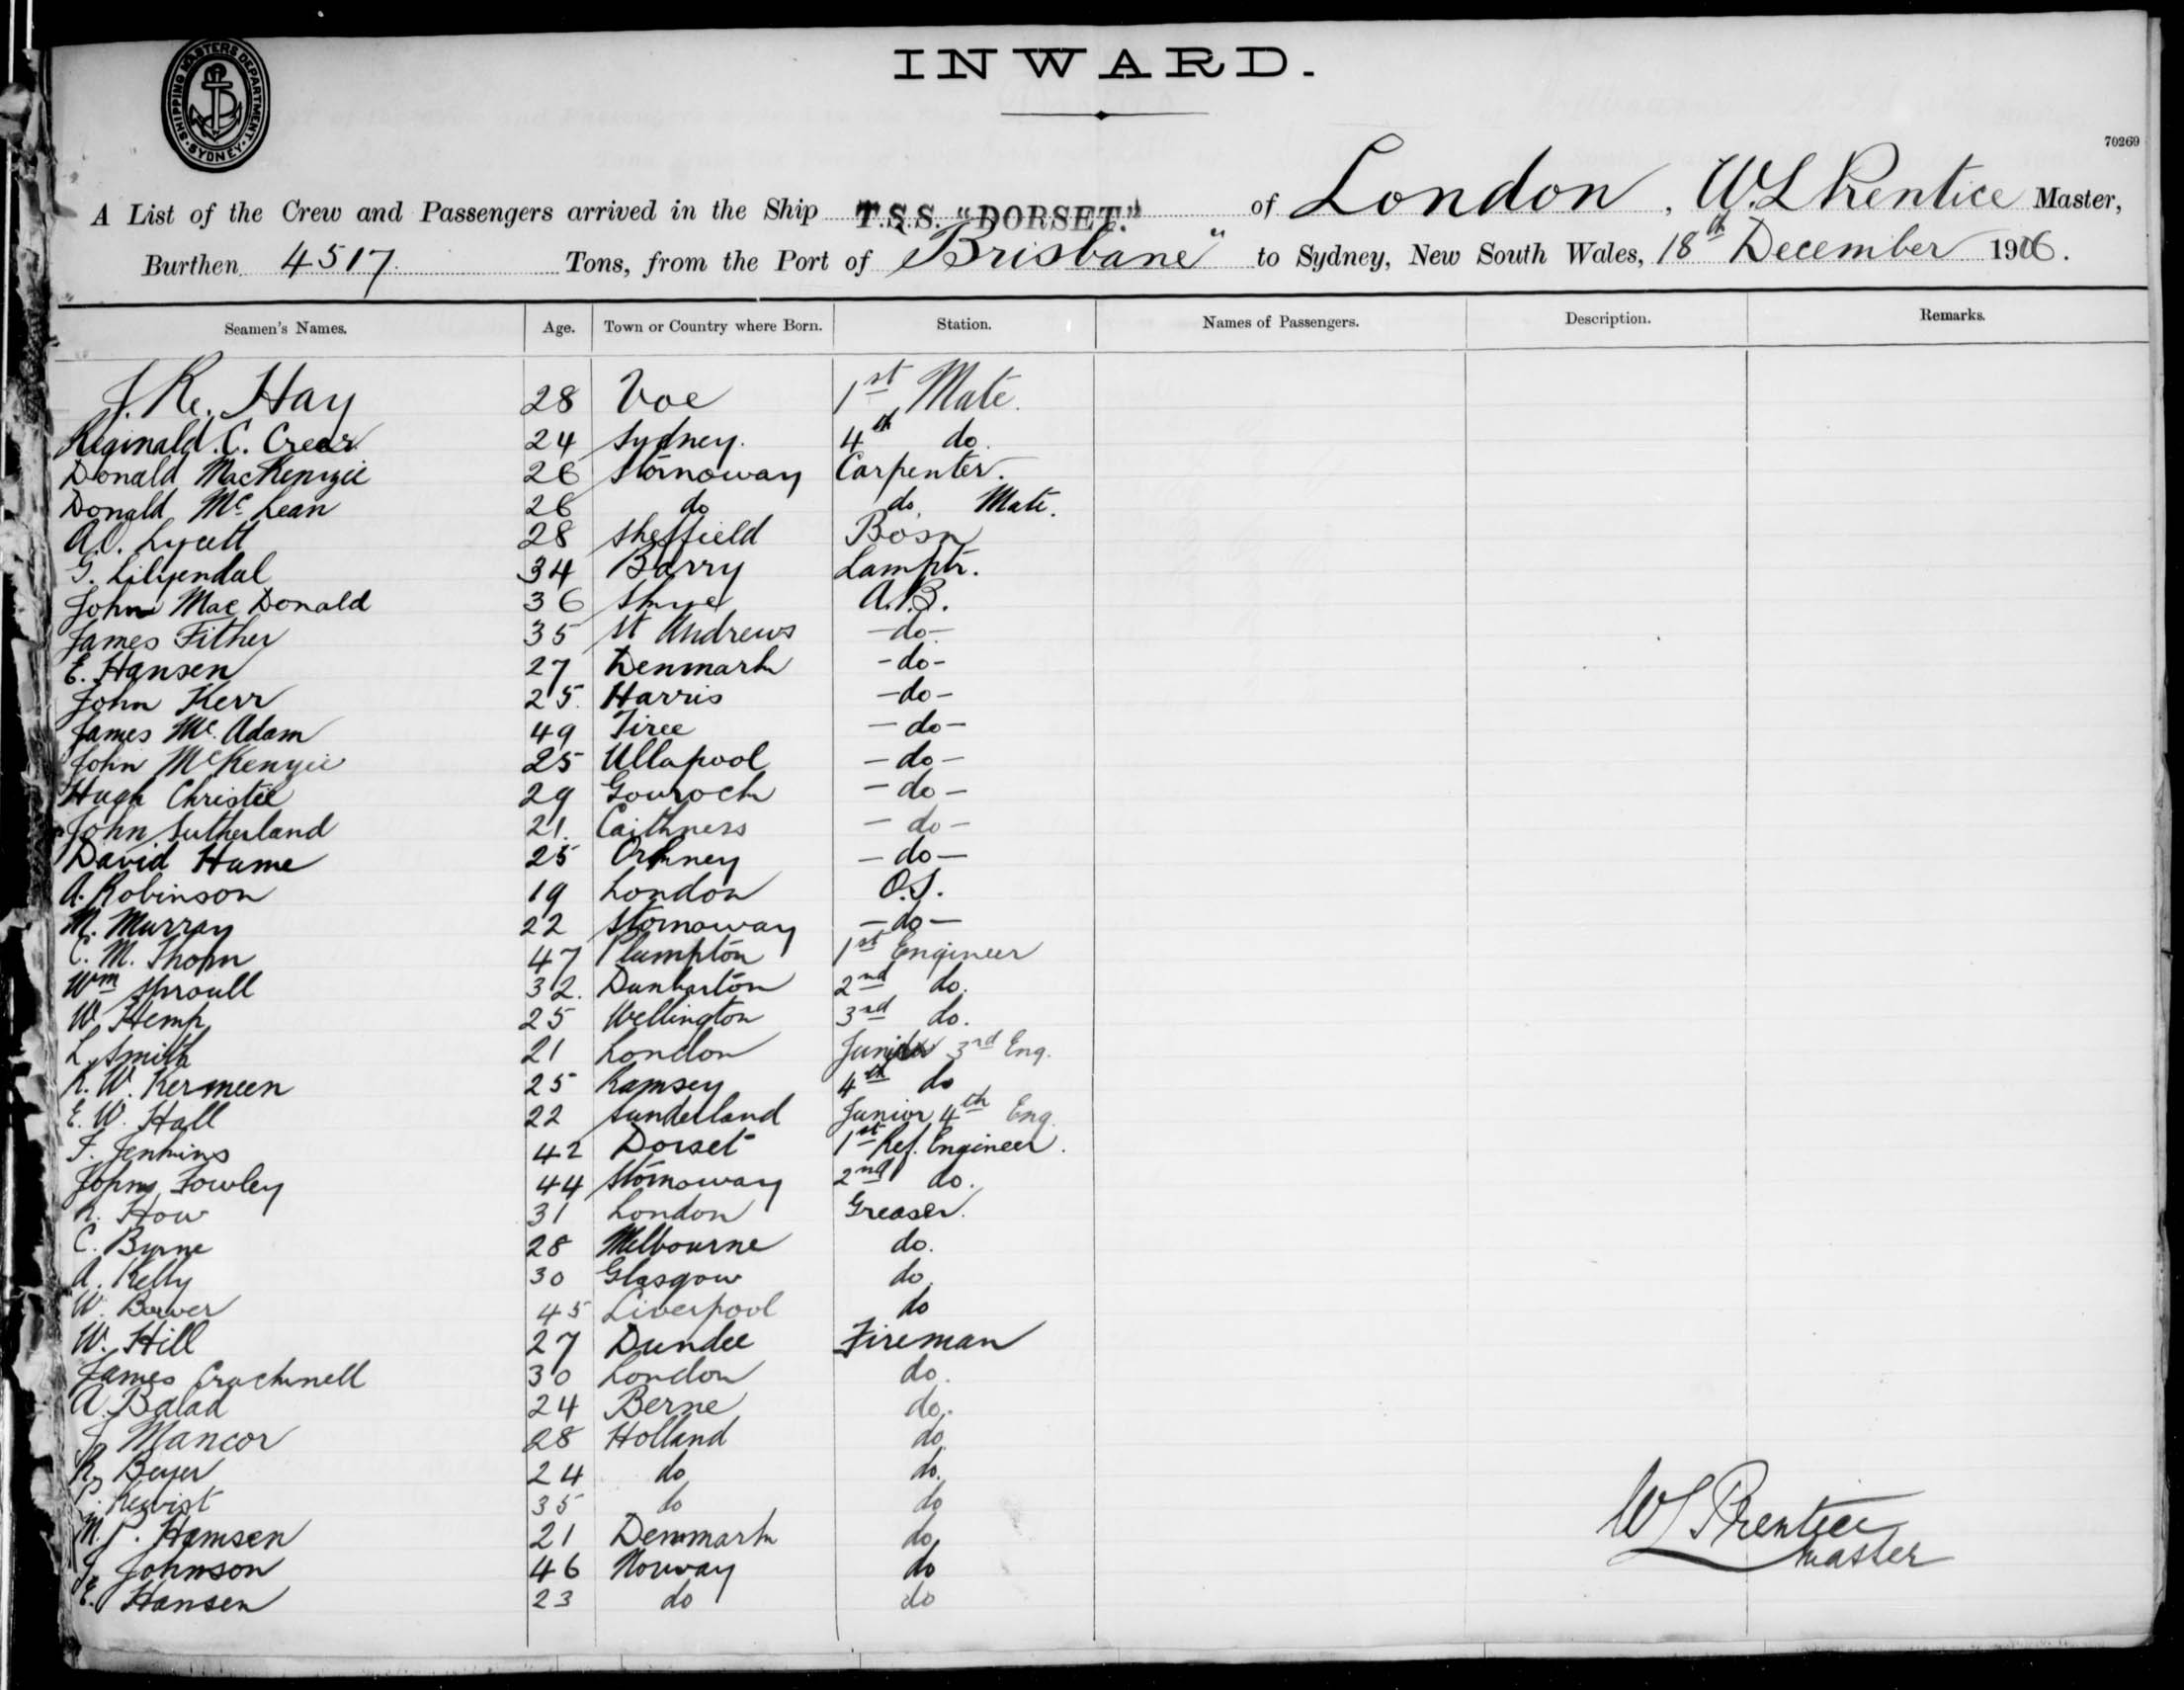 SHIPPING MASTERS DEPARTMENT. SYDNEY.
INWARD.
70269
A List of the Crew and Passengers arrived in the Ship T.S.S. "DORSET." of London, W.L Prentice Master,
Burthen 4517 Tons, from the Port of "Brisbane" to Sydney, New South Wales, 18th December 1906.
Seamen's Names. Age. Town or Country where Born. Station. Names of Passengers. Description. Remarks.
J. R. Hay 28 Voe 1st Mate.
Reginald. C. Crear 24 Sydney. 4th do.
Donald MacKenzie 26 Stornoway Carpenter.
Donald Mc Lean 26 do do. Mate.
A.O. Lycett 28 Sheffield Bosn
G. Lilyendal 34 Barry Lamptr.
John Mac Donald 36 Skye A.B.
James Fither 35 St Andrews -do-
E. Hansen 27 Denmark -do-
John Kerr 25. Harris -do-
James Mc. Adam 49 Tiree -do-
John McKenzie 25 Ullapool -do-
Hugh Christie 29 Gourock -do-
John Sutherland 21. Caithness -do-
David Hume 25 Orkney -do-
A. Robinson 19 London O.S.
M. Murray 22 Stornoway -do-
C. M. Thorn 47 Plumpton 1st Engineer
Wm Sproull 32. Dunbarton 2nd do.
W. Kemp 25 Wellington 3rd do.
L. Smith 21 London Junior 3rd Eng.
R. W. Kermeen 25 Ramsey 4th do
E. W. Hall 22 Sunderland Junior 4th Eng.
F. Jenkins 42 Dorset 1st Ref. Engineer.
John Fowley 44 Stornoway 2nd do.
R. How 31 London Greaser.
C. Byrne 28 Melbourne do.
A. Kelly 30 Glasgow do.
W. Bower 45 Liverpool do
W. Hill 27 Dundee Fireman
James Cracknell 30 London do.
A. Balad 24 Berne do.
J. Mancor 28 Holland do.
R. Beyer 24 do do.
P. 35 do do
M. P. Hamsen 21 Denmark do.
J. Johnson 46 Norway do
E. Hansen 23 do do
WL Prentice
Master